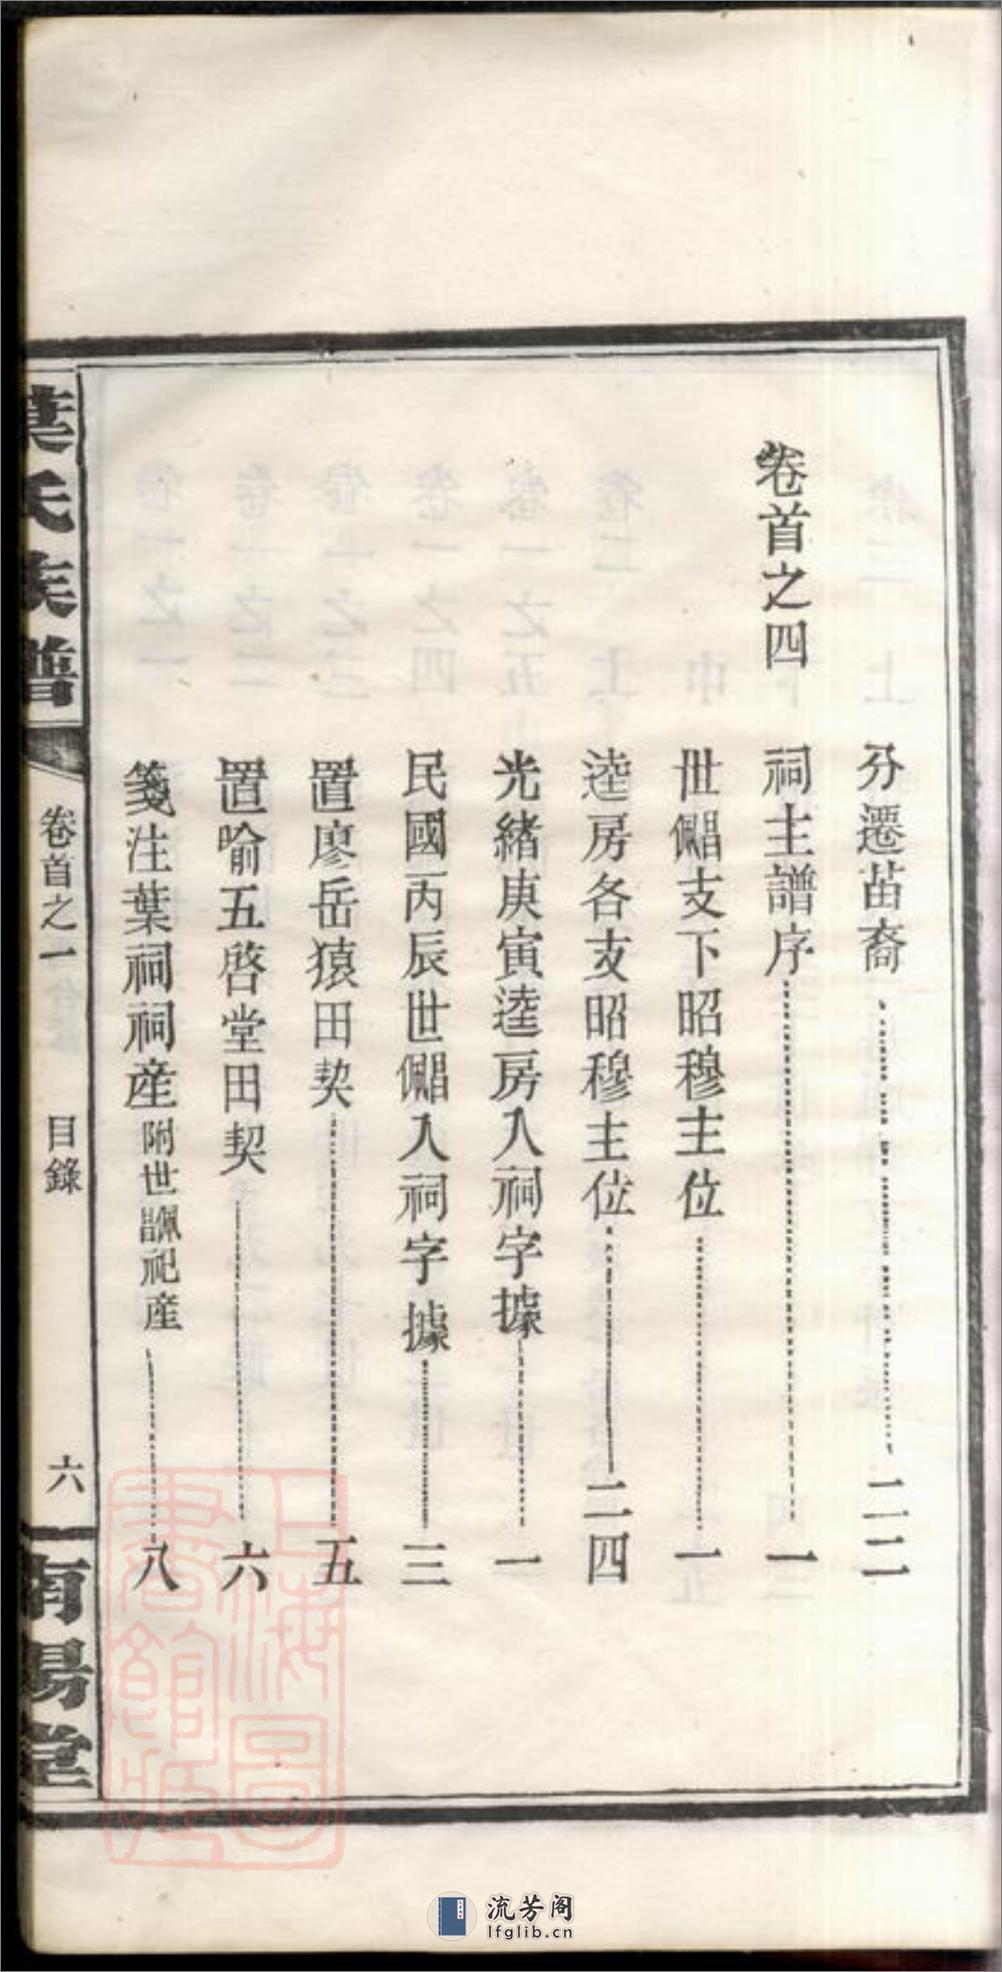 分遷苗裔……二二
卷首之四
祠主譜序……一
世僴支下昭穆主位……一
逵房各支昭穆主位……二四
光緒庚寅逵房入祠字據……一
民國丙辰世僴入祠字據……三
置廖岳猿田契……五
置喻五啓堂田契……六
箋注葉祠祠産附世諷祀産……八
葉氏族譜
卷首之一
目錄
六
南陽堂
上海圖書館藏
流芳阁
lfglib.cn